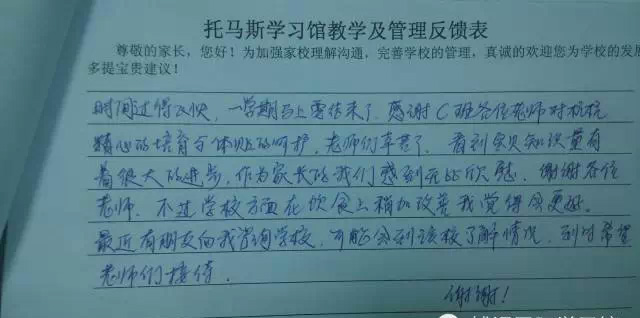 托马斯学习馆教学及管理反馈表
尊敬的家长，您好！为加强家校理解沟通，完善学校的管理，真诚的欢迎您为学校的发展
多提宝贵建议！
时间过得飞快，一学期马上要结束了。感谢C班各位老师对杭杭
精心的培育与体贴的呵护，老师们辛苦了。看到宝贝知识量有
着很大的进步，作为家长的我们感到无比欣慰。谢谢各位
老师。不过学校方面在饮食上稍加改善我觉得会更好。
最近有朋友向我咨询学校，可能会到该校了解情况，到时希望
老师们接待。
谢谢！